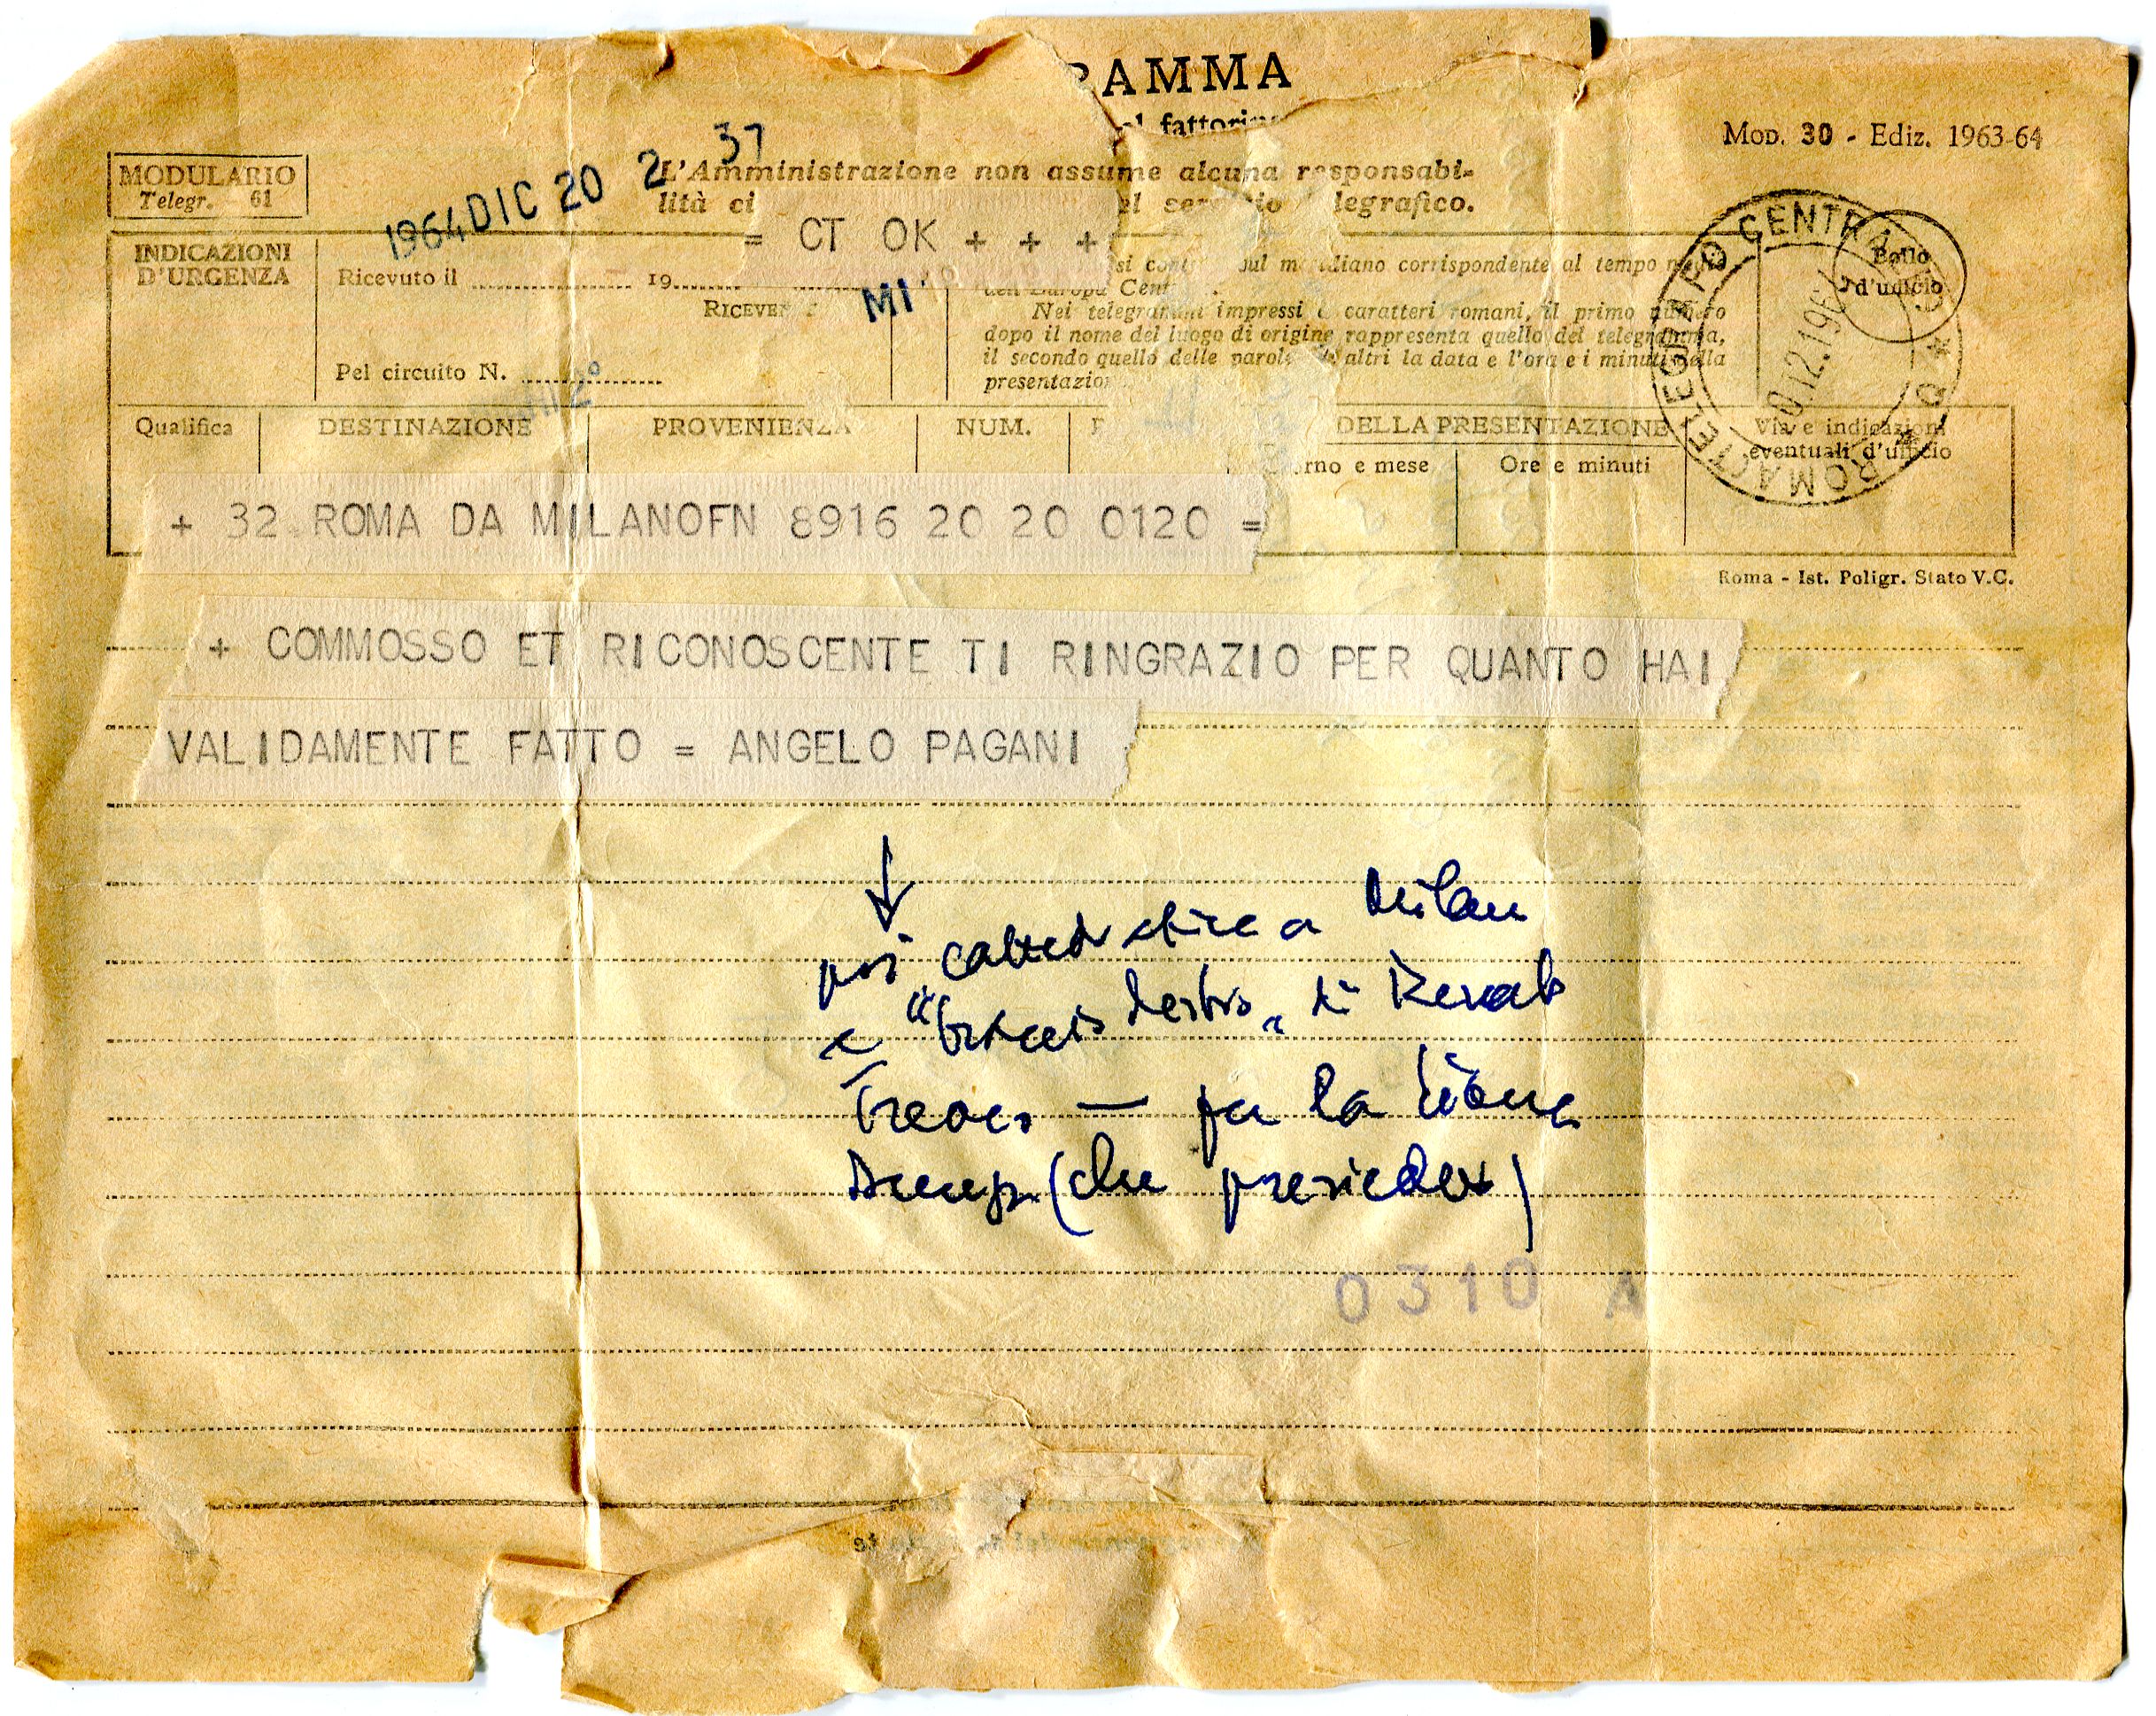 RAMMA
al fattorino
Mod. 30 - Ediz. 1963-64
MODULARIO
Telegr. 61
1964 DIC 20 2 37
L'Amministrazione non assume alcuna responsabi-
lità ci el servizio telegrafico.
= CT OK + + +
INDICAZIONI
D'URGENZA
Ricevuto il 19
RICEVEN
Pel circuito N.
MI
si conta sul meridiano corrispondente al tempo medio
dell'Europa Cent
Nei telegrammi impressi a caratteri romani, il primo numero
dopo il nome del luogo di origine rappresenta quello del telegramma,
il secondo quello delle parole altri la data e l'ora e i minuti della
presentazion
Bollo
d'ufficio
ROMA TELEGRAFO CENTRALE
Qualifica
DESTINAZIONE
PROVENIENZA
NUM.
DELLA PRESENTAZIONE
rno e mese
Ore e minuti
Via e indicazioni
eventuali d'ufficio
+ 32 ROMA DA MILANOFN 8916 20 20 0120 =
Roma - Ist. Poligr. Stato V.C.
+ COMMOSSO ET RICONOSCENTE TI RINGRAZIO PER QUANTO HAI
VALIDAMENTE FATTO = ANGELO PAGANI
poi a Milano
e "braccio destro" di Renato
Treves — per la
(che presiedeva)
0310 A